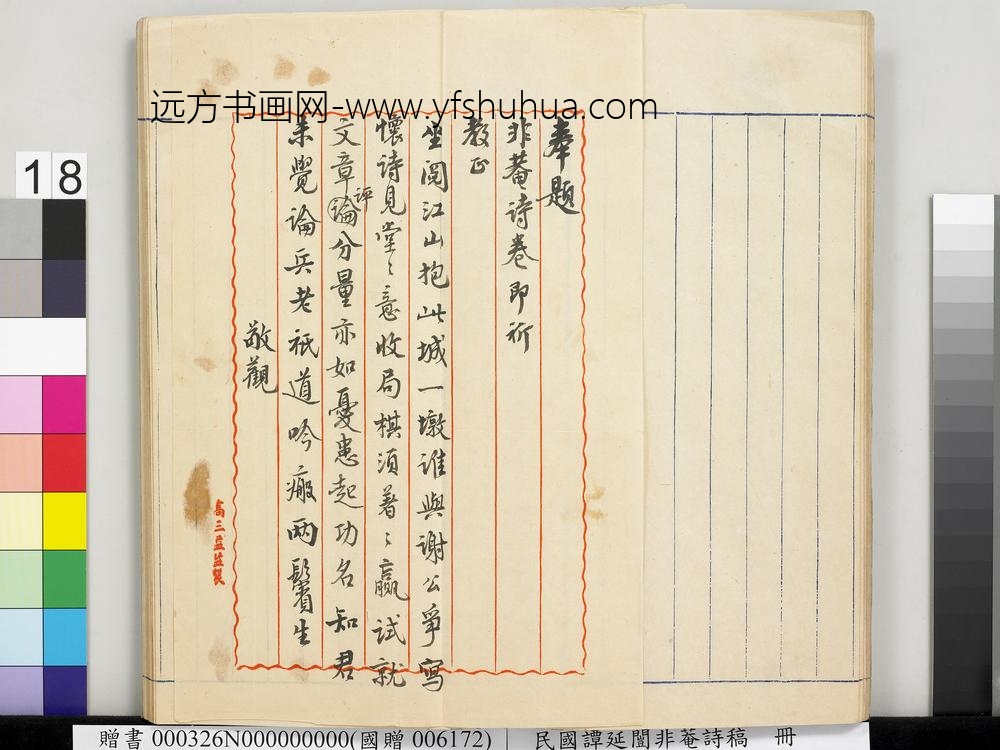 远方书画网-www.yfshuhua.com
奉題
非菴詩卷即祈
教正
坐閱江山抱此城一墩誰與謝公爭寫
懷詩見堂〻意收局棋須著〻贏試就
文章論分量亦如憂患起功名知君
評
未覺論兵老祇道吟癥兩鬢生
敬觀
高三益監製
18
贈書 000326N000000000(國贈 006172)
民國譚延闓非菴詩稿 冊